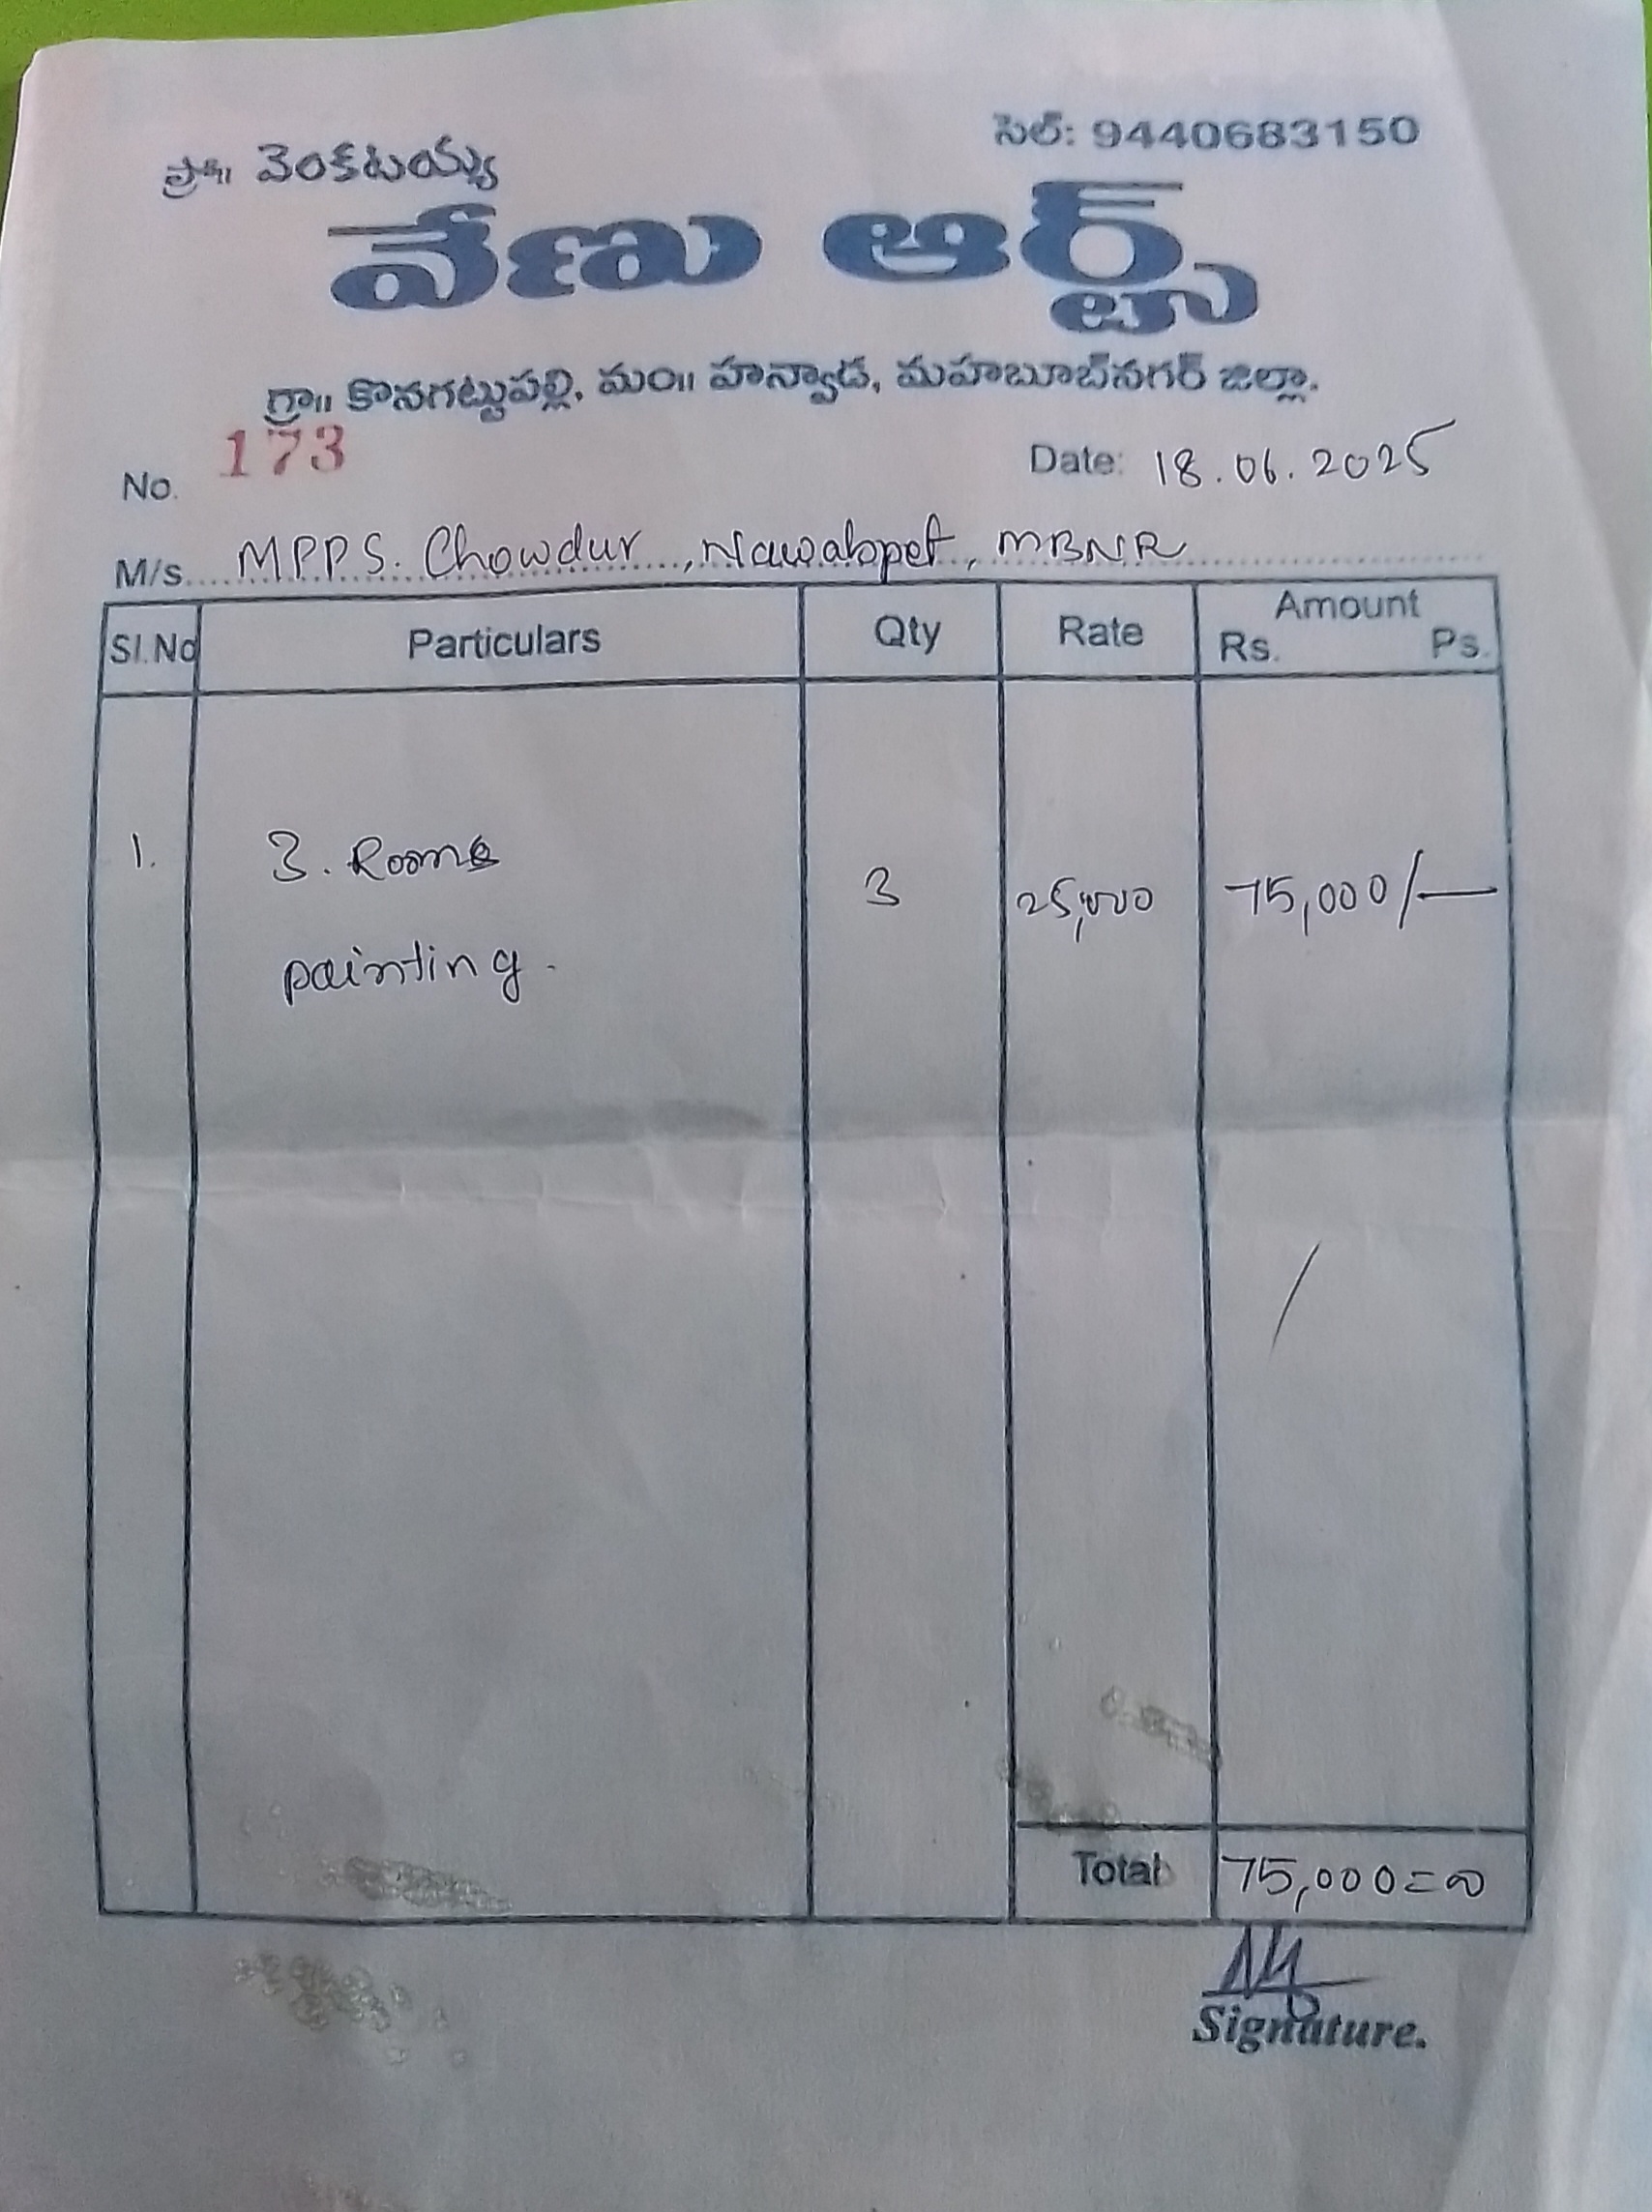 ప్రొ॥ వెంకటయ్య
సెల్: 9440683150
వేణు ఆర్ట్స్
గ్రా॥ కొనగట్టుపల్లి, మం॥ హన్వాడ, మహబూబ్‌నగర్ జిల్లా.
No. 173
Date: 18.06.2025
M/s. MPPS. Chowdur, Nawabpet, MBNR
Sl.No Particulars Qty Rate Amount Rs. Ps.
1. 3. Rooms 3 25,000 75,000/-
painting.
Total 75,000=00
Signature.